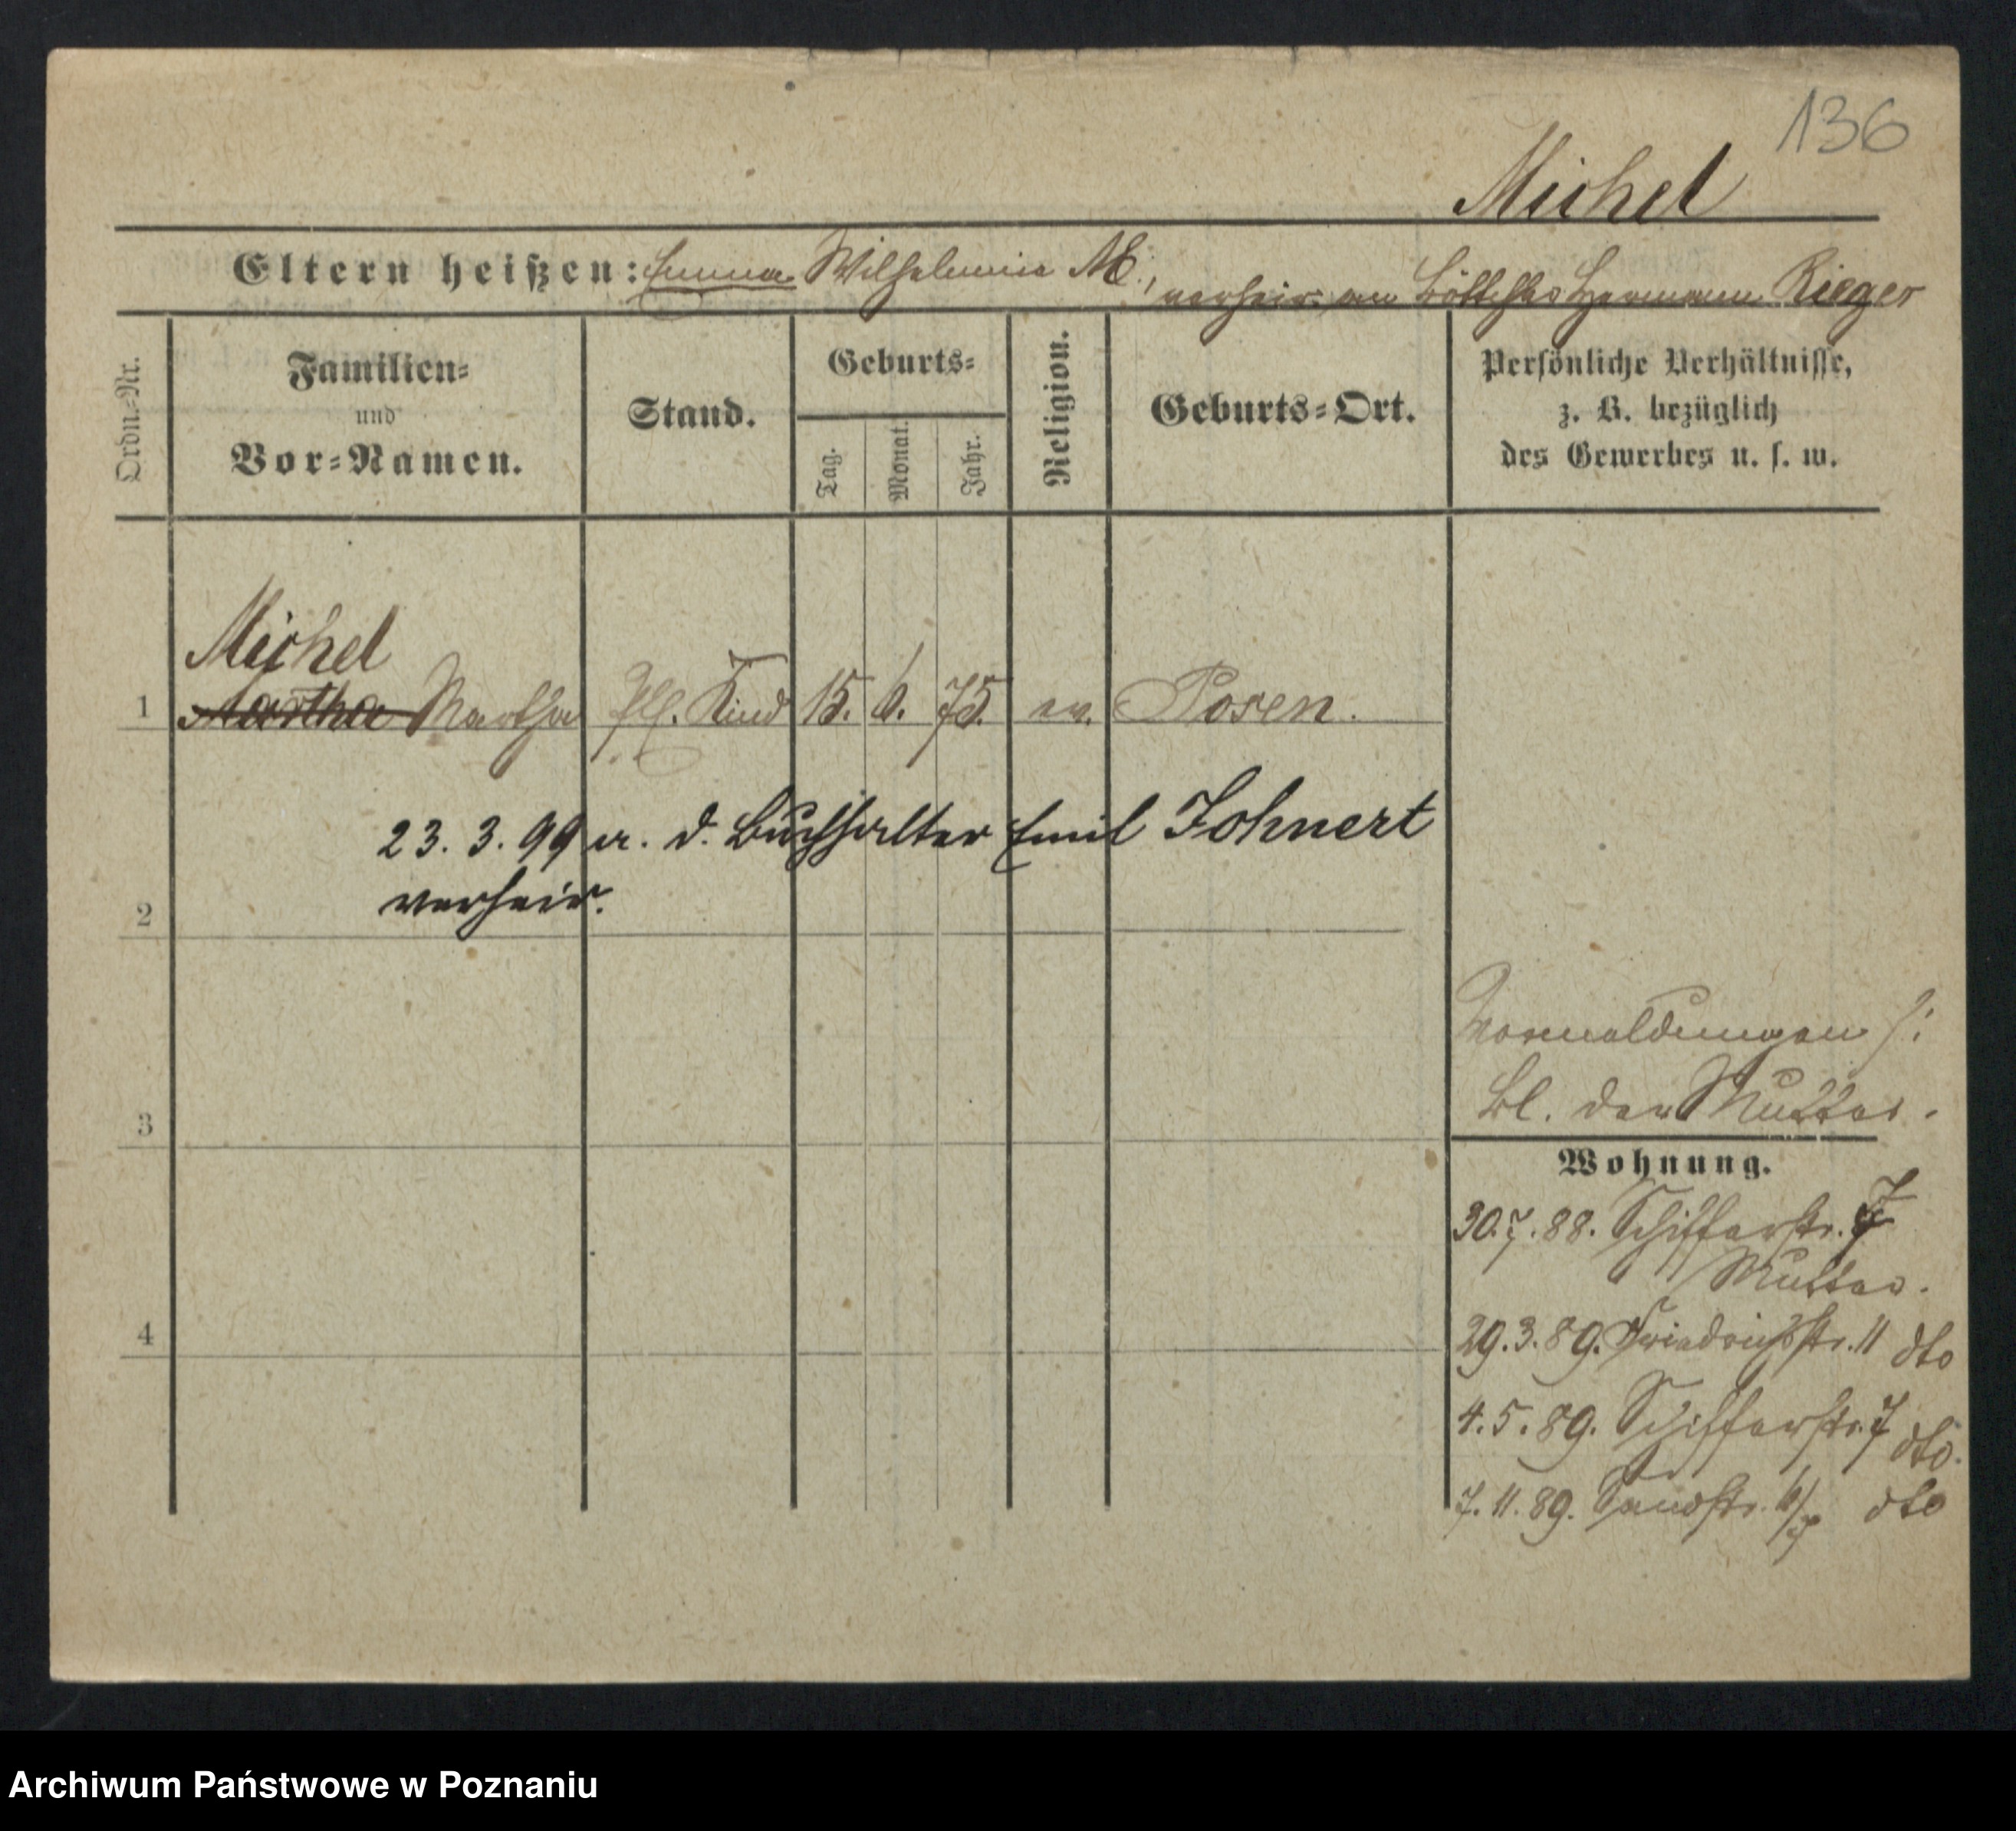 136
Michel
Eltern heißen: Emma Wilhelmine M., verheir. an Böttcher Hermann Rieger
Ordn.-Nr.
Familien- und Vor-Namen.
Stand.
Geburts-
Tag.
Monat.
Jahr.
Religion.
Geburts-Ort.
Persönliche Verhältnisse,
z. B. bezüglich
des Gewerbes u. s. w.
Michel
1 Martha Martha Kind 15. 6. 75. ev. Posen.
23. 3. 99 a. d. Buchhalter Emil Johnert
verheir.
2
3
4
Vormeldungen s:
Bl. der Mutter.
Wohnung.
30.7.88. Schifferstr. 7
Mutter.
29.3.89. Friedrichstr. 11 dto
4.5.89. Schifferstr. 7 dto.
7.11.89. Sandstr. dto
Archiwum Państwowe w Poznaniu